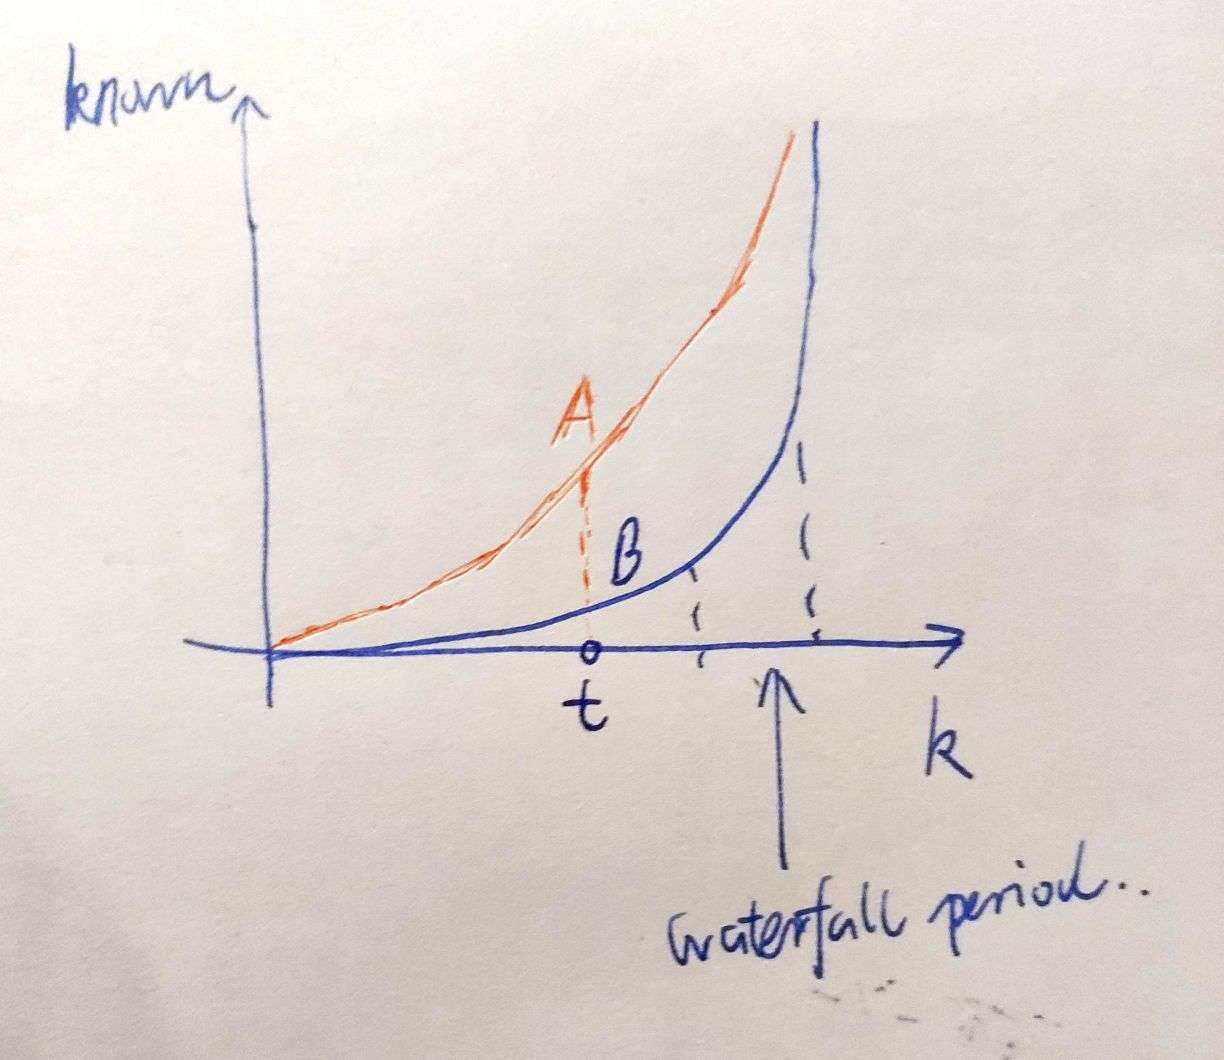 known
A
B
t
k
waterfall period..